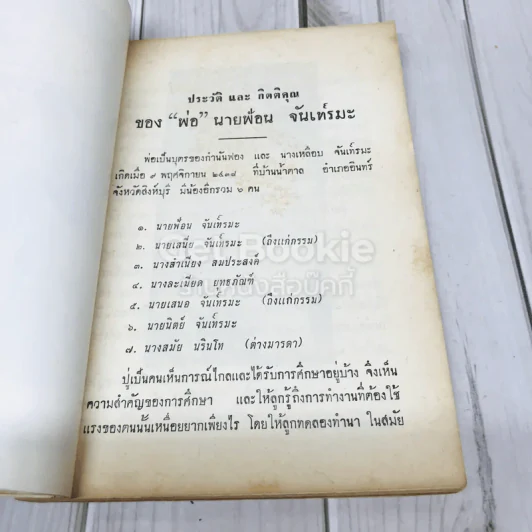 ประวัติ และ กิตติคุณ
ของ “พ่อ” นายฟ้อน จันเท์รมะ
พ่อเป็นบุตรของกำนันฟอง และ นางเหลือบ จันเท์รมะ
เกิดเมื่อ ๙ พฤศจิกายน ๒๔๓๘ ที่บ้านน้ำตาล อำเภออินทร์
จังหวัดสิงห์บุรี มีน้องอีกรวม ๖ คน
๑. นายฟ้อน จันเท์รมะ
๒. นายเสนีย จันเท์รมะ (ถึงแก่กรรม)
๓. นางสำเนียง สมประสงค์
๔. นางละเมียด ยุทธภัณฑ์
๕. นายเสนอ จันเท์รมะ (ถึงแก่กรรม)
๖. นายนิตย์ จันเท์รมะ
๗. นางสมัย นรินโท (ต่างมารดา)
Get Bookie
ร้านหนังสือบุ๊คกี้
ปู่เป็นคนเห็นการณ์ไกลและได้รับการศึกษาอยู่บ้าง จึงเห็น
ความสำคัญของการศึกษา และให้ลูกรู้ถึงการทำงานที่ต้องใช้
แรงของตนนั้นเหนื่อยยากเพียงไร โดยให้ลูกทดลองทำนา ในสมัย